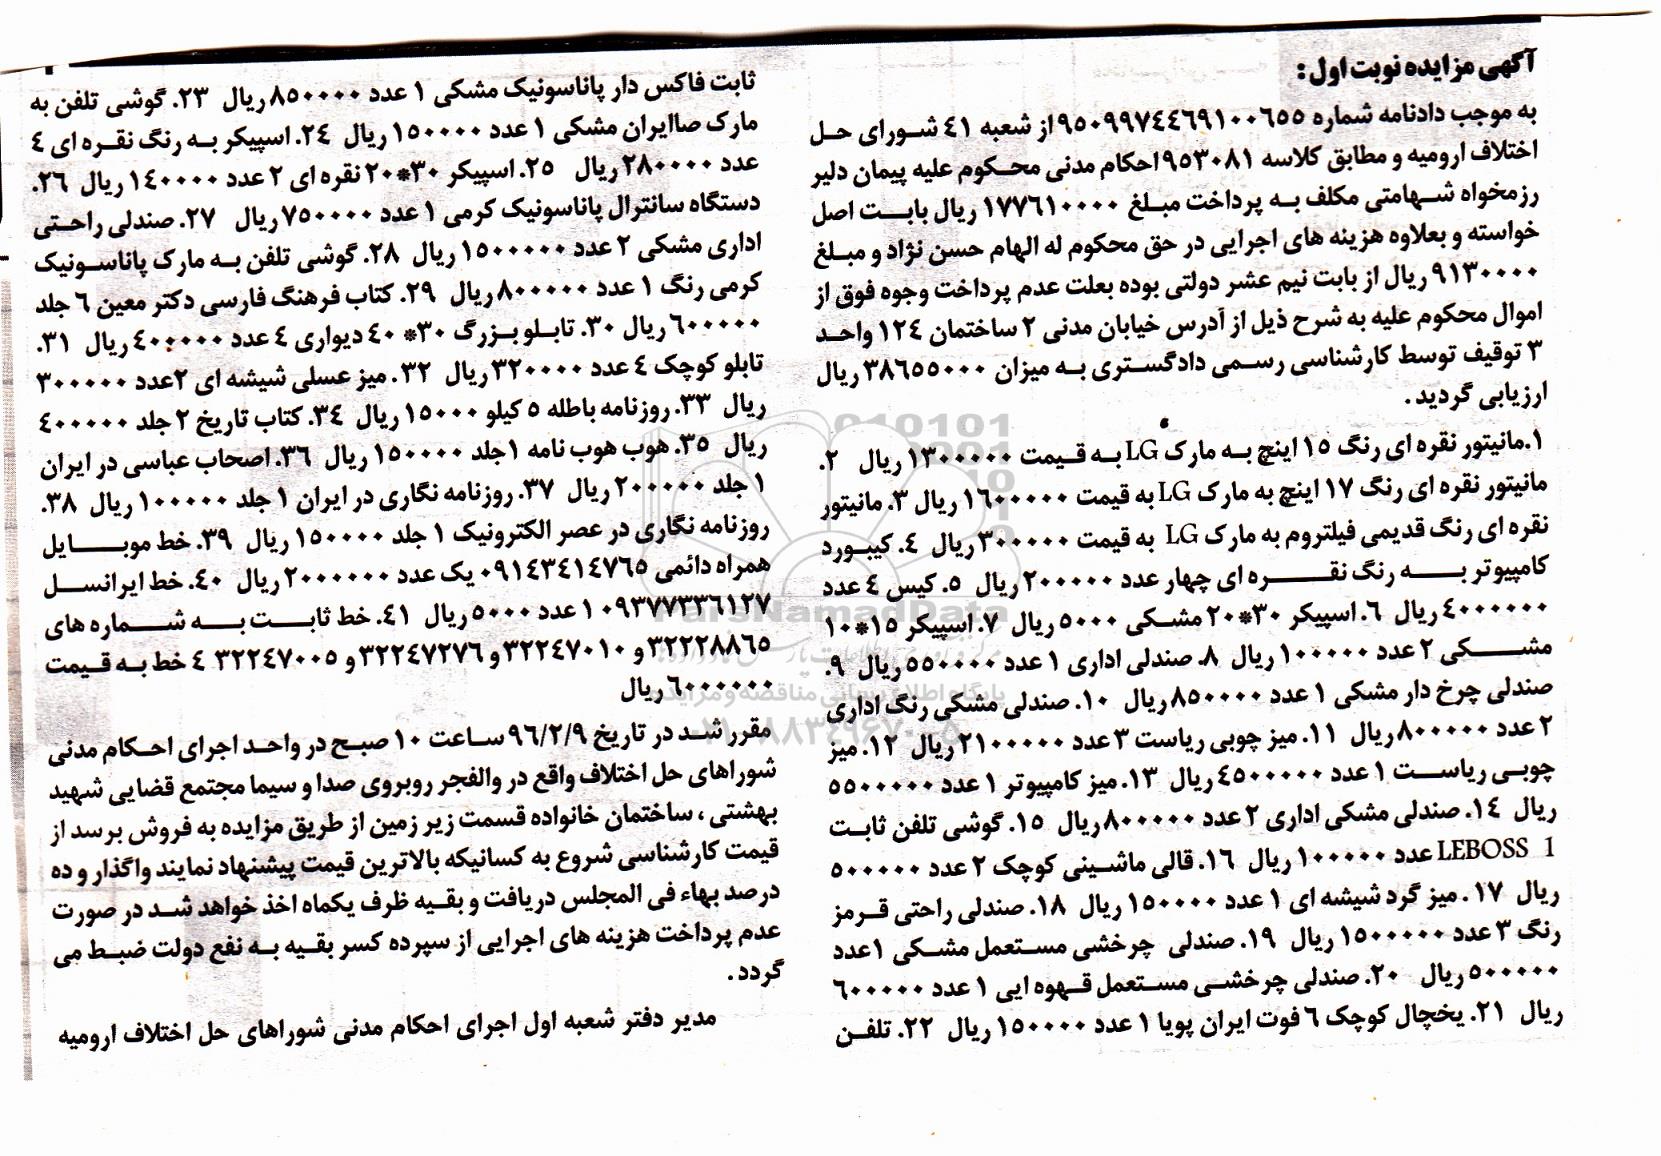 آگهی مزایده نوبت اول:
به موجب دادنامه شماره ۹۵۰۹۹۷٤٤٦۹۱۰۰٦۵۵ از شعبه ٤۱ شورای حل
اختلاف ارومیه و مطابق کلاسه ۹۵۳۰۸۱ احکام مدنی محکوم علیه پیمان دلیر
رزمخواه شهامتی مکلف به پرداخت مبلغ ۱۷۷٦۱۰۰۰۰ ریال بابت اصل
خواسته و بعلاوه هزینه های اجرایی در حق محکوم له الهام حسن نژاد و مبلغ
۹۱۳۰۰۰۰ ریال از بابت نیم عشر دولتی بوده بعلت عدم پرداخت وجوه فوق از
اموال محکوم علیه به شرح ذیل از آدرس خیابان مدنی ۲ ساختمان ۱۲٤ واحد
۳ توقیف توسط کارشناسی رسمی دادگستری به میزان ۳۸٦۵۵۰۰۰ ریال
ارزیابی گردید .
۱.مانیتور نقره ای رنگ ۱۵ اینچ به مارک LG به قیمت ۱۳۰۰۰۰۰ ریال ۲.
مانیتور نقره ای رنگ ۱۷ اینچ به مارک LG به قیمت ۱٦۰۰۰۰۰ ریال ۳. مانیتور
نقره ای رنگ قدیمی فیلتروم به مارک LG به قیمت ۳۰۰۰۰۰ ریال ٤. کیبورد
کامپیوتر به رنگ نقره ای چهار عدد ۲۰۰۰۰۰ ریال ۵. کیس ٤ عدد
٤۰۰۰۰۰۰ ریال ٦. اسپیکر ۳۰*۲۰ مشکی ۵۰۰۰ ریال ۷. اسپیکر ۱۵*۱۰
مشکی ۲ عدد ۱۰۰۰۰۰ ریال ۸. صندلی اداری ۱ عدد ۵۵۰۰۰۰ ریال ۹.
صندلی چرخ دار مشکی ۱ عدد ۸۵۰۰۰۰ ریال ۱۰. صندلی مشکی رنگ اداری
۲ عدد ۸۰۰۰۰۰ ریال ۱۱. میز چوبی ریاست ۳ عدد ۲۱۰۰۰۰۰ ریال ۱۲. میز
چوبی ریاست ۱ عدد ٤۵۰۰۰۰۰ ریال ۱۳. میز کامپیوتر ۱ عدد ۵۵۰۰۰۰۰
ریال ۱٤. صندلی مشکی اداری ۲ عدد ۸۰۰۰۰۰ ریال ۱۵. گوشی تلفن ثابت
LEBOSS 1 عدد ۱۰۰۰۰۰ ریال ۱٦. قالی ماشینی کوچک ۲ عدد ۵۰۰۰۰۰
ریال ۱۷ . میز گرد شیشه ای ۱ عدد ۱۵۰۰۰۰ ریال ۱۸. صندلی راحتی قرمز
رنگ ۳ عدد ۱۵۰۰۰۰۰ ریال ۱۹. صندلی چرخشی مستعمل مشکی ۱عدد
۵۰۰۰۰۰ ریال ۲۰. صندلی چرخشی مستعمل قهوه ایی ۱ عدد ٦۰۰۰۰۰
ریال ۲۱. یخچال کوچک ٦ فوت ایران پویا ۱ عدد ۱۵۰۰۰۰ ریال ۲۲. تلفن
ثابت فاکس دار پاناسونیک مشکی ۱ عدد ۸۵۰۰۰۰ ریال ۲۳. گوشی تلفن به
مارک صاایران مشکی ۱ عدد ۱۵۰۰۰۰ ریال ۲٤. اسپیکر به رنگ نقره ای ٤
عدد ۲۸۰۰۰۰ ریال ۲۵. اسپیکر ۳۰*۲۰ نقره ای ۲ عدد ۱٤۰۰۰۰ ریال ۲٦.
دستگاه سانترال پاناسونیک کرمی ۱ عدد ۷۵۰۰۰۰ ریال ۲۷. صندلی راحتی
اداری مشکی ۲ عدد ۱۵۰۰۰۰۰ ریال ۲۸. گوشی تلفن به مارک پاناسونیک
کرمی رنگ ۱ عدد ۸۰۰۰۰۰ ریال ۲۹. کتاب فرهنگ فارسی دکتر معین ٦ جلد
٦۰۰۰۰۰ ریال ۳۰. تابلو بزرگ ۳۰* ٤۰ دیواری ٤ عدد ٤۰۰۰۰۰ ریال ۳۱.
تابلو کوچک ٤ عدد ۳۲۰۰۰۰ ریال ۳۲. میز عسلی شیشه ای ۲عدد ۳۰۰۰۰۰
ریال ۳۳. روزنامه باطله ۵ کیلو ۱۵۰۰۰ ریال ۳٤. کتاب تاریخ ۲ جلد ٤۰۰۰۰۰
ریال ۳۵. هوب هوب نامه ۱جلد ۱۵۰۰۰۰ ریال ۳٦. اصحاب عباسی در ایران
۱ جلد ۲۰۰۰۰۰ ریال ۳۷. روزنامه نگاری در ایران ۱ جلد ۱۰۰۰۰۰ ریال ۳۸.
روزنامه نگاری در عصر الکترونیک ۱ جلد ۱۵۰۰۰۰ ریال ۳۹. خط موبایل
همراه دائمی ۰۹۱٤۳٤۱٤۷٦۵ یک عدد ۲۰۰۰۰۰۰ ریال ٤۰. خط ایرانسل
۰۹۳۷۷۳۳٦۱۲۷ ۱ عدد ۵۰۰۰ ریال ٤۱. خط ثابت به شماره های
۳۲۲۲۸۸٦۵ و ۳۲۲٤۷۰۱۰ و ۳۲۲٤۷۲۷٦ و ۳۲۲٤۷۰۰۵ ٤ خط به قیمت
٦۰۰۰۰۰۰ ریال
مقرر شد در تاریخ ۹٦/۲/۹ ساعت ۱۰ صبح در واحد اجرای احکام مدنی
شوراهای حل اختلاف واقع در والفجر روبروی صدا و سیما مجتمع قضایی شهید
بهشتی ، ساختمان خانواده قسمت زیر زمین از طریق مزایده به فروش برسد از
قیمت کارشناسی شروع به کسانیکه بالاترین قیمت پیشنهاد نمایند واگذار و ده
درصد بهاء فی المجلس دریافت و بقیه ظرف یکماه اخذ خواهد شد در صورت
عدم پرداخت هزینه های اجرایی از سپرده کسر بقیه به نفع دولت ضبط می
گردد .
مدیر دفتر شعبه اول اجرای احکام مدنی شوراهای حل اختلاف ارومیه
ParsNamadData